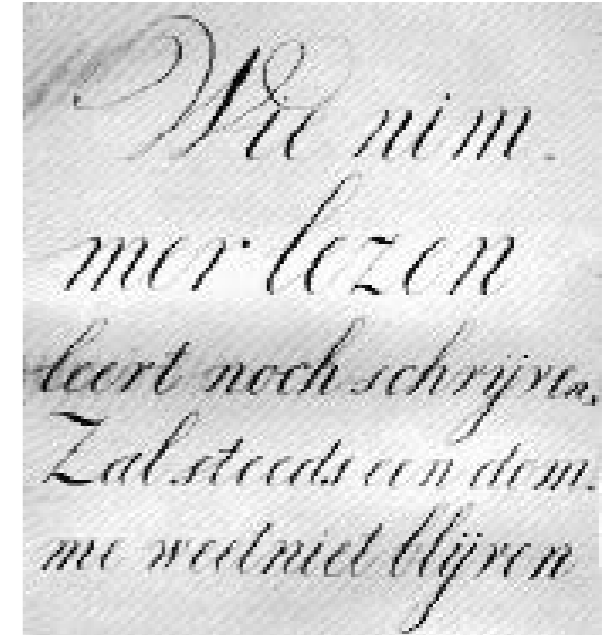 Wie nim.
mer lezen
leert noch schrijven,
Zal steeds een dom.
me weetniet blijven